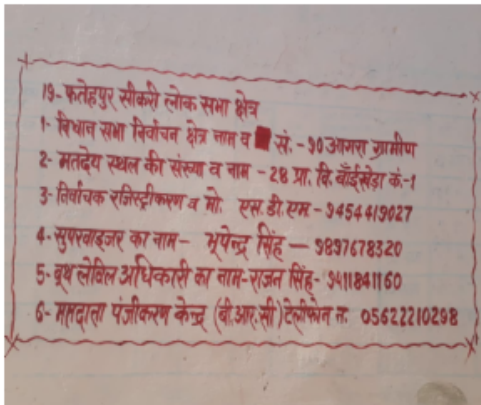 19- फतेहपुर सीकरी लोक सभा क्षेत्र
1- विधान सभा निर्वाचन क्षेत्र नाम व सं. - 90 आगरा ग्रामीण
2- मतदेय स्थल की संख्या व नाम - 28 प्रा. वि. बाँईखेड़ा कं.-1
3- निर्वाचक रजिस्ट्रीकरण व मो. एस.डी.एम - 9454419027
4- सुपरवाइजर का नाम - भूपेन्द्र सिंह — 9897678320
5- बूथ लेविल अधिकारी का नाम - राजन सिंह - 9411841160
6- मतदाता पंजीकरण केन्द्र (बी.आर.सी) टेलीफोन न. 05622210298